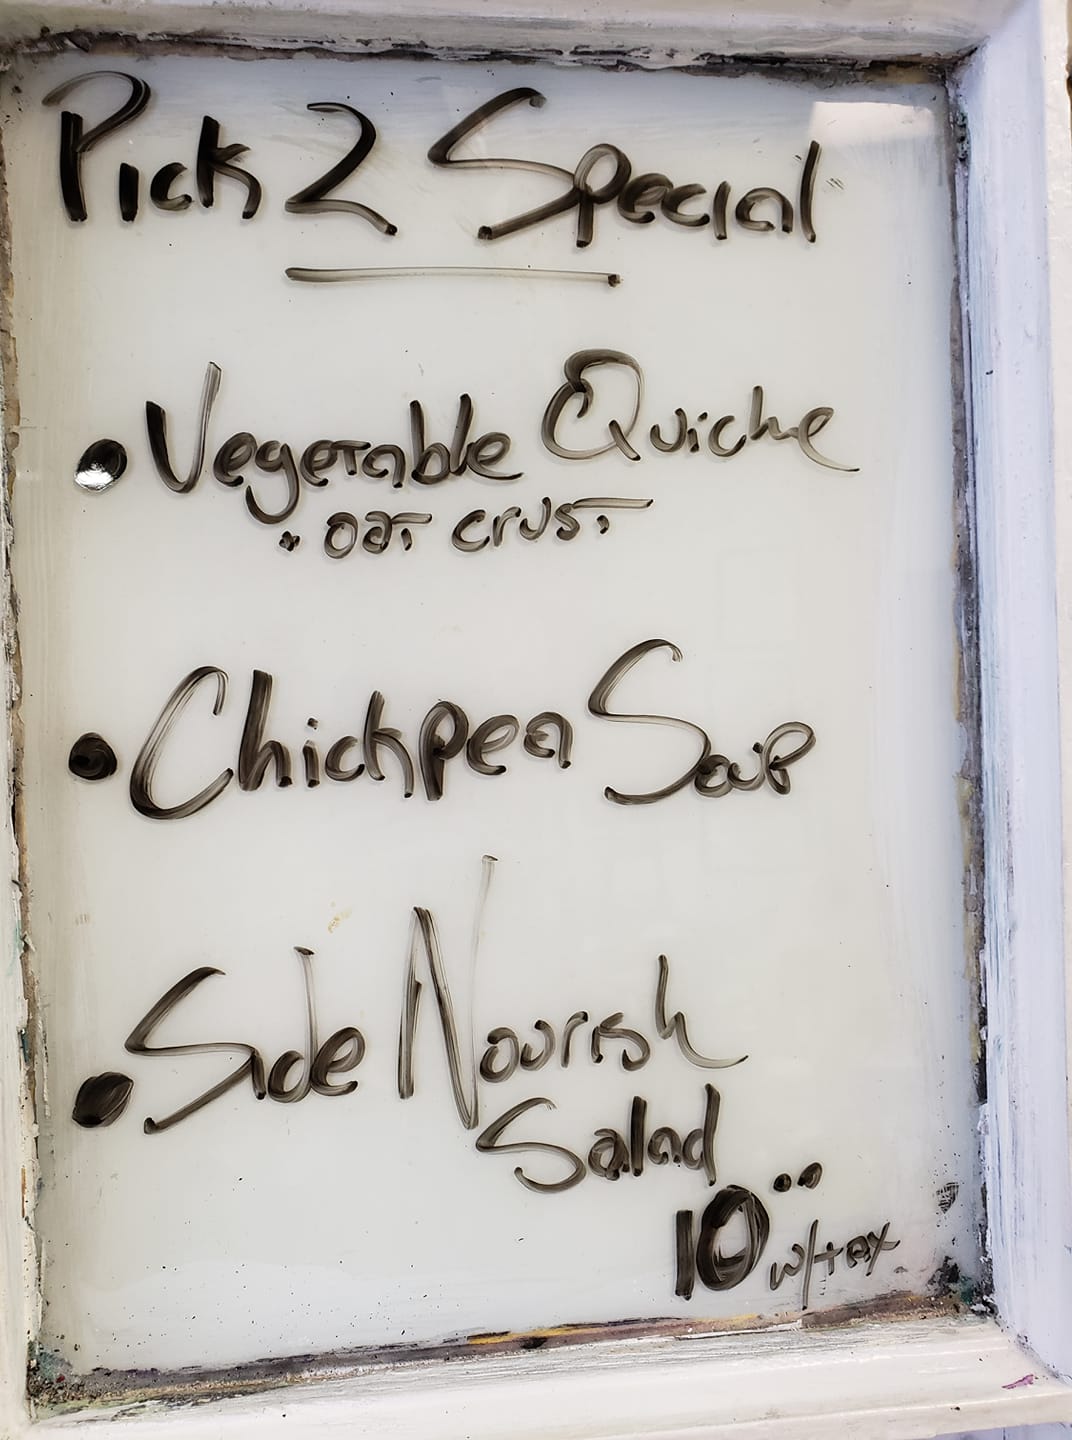 Pick 2 Special
• Vegetable Quiche
• oat crust
• Chickpea Soup
• Side Nourish
Salad
10.. w/tax